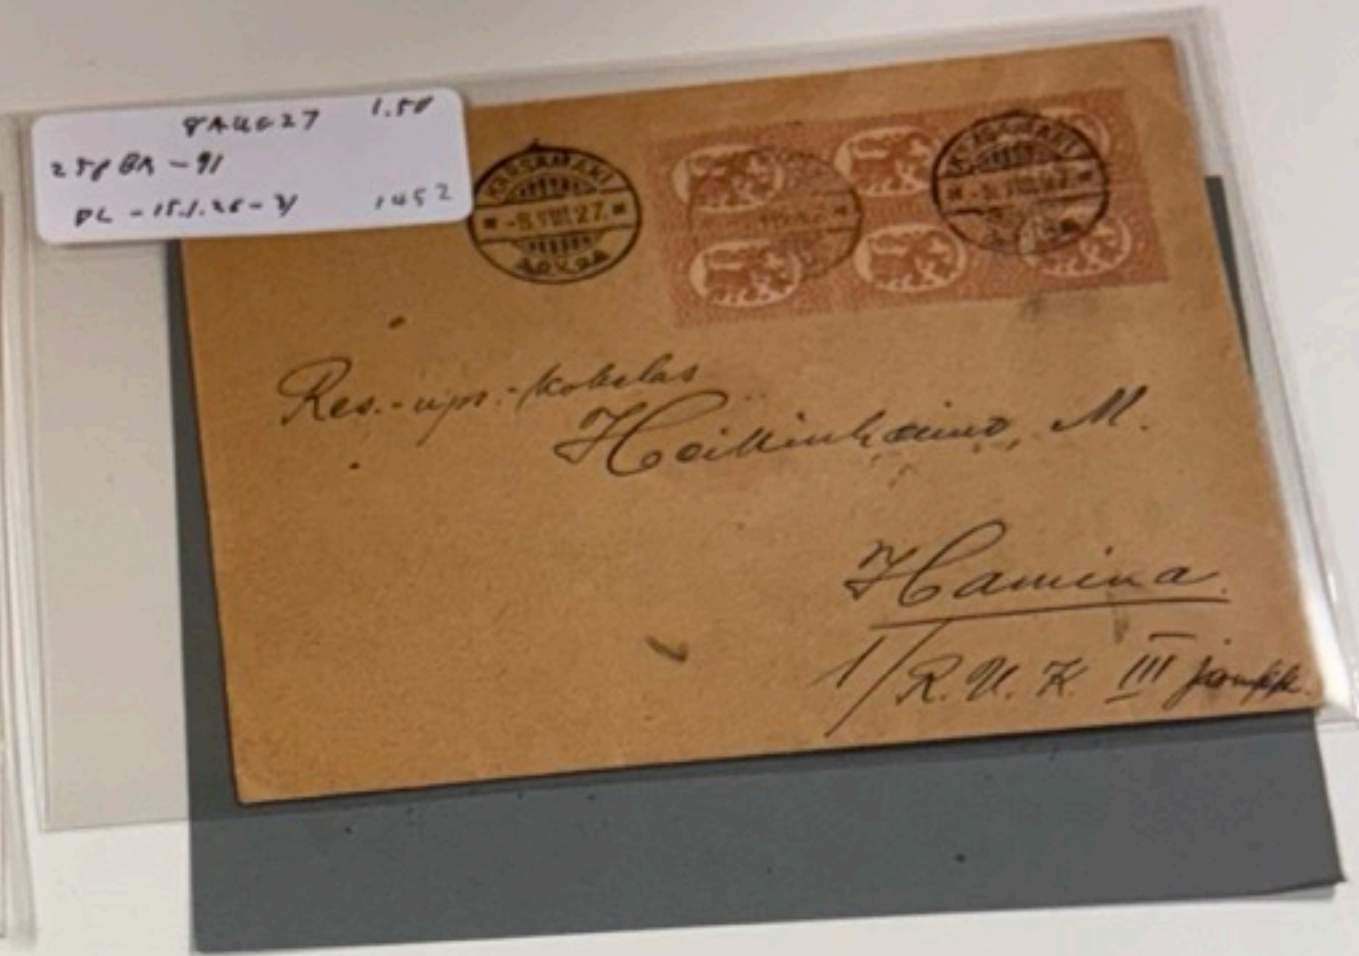 8AUG27 1.50
25p BR - 91
DL - 15.1.26 - 31 1452
KÄRSÄMÄKI
-8.VIII.27.
KÄRSÄMÄKI
-8.VIII.27.
Res.-ups.-kokelas
Heikinheimo, M.
Hamina.
1/R.U.K. III